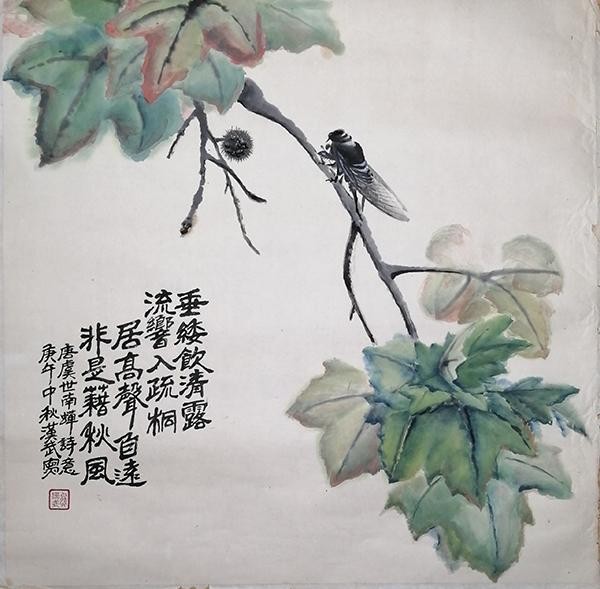 垂緌飲清露
流響入疏桐
居高聲自遠
非是藉秋風
唐虞世南蟬詩意
庚午中秋漢武寫